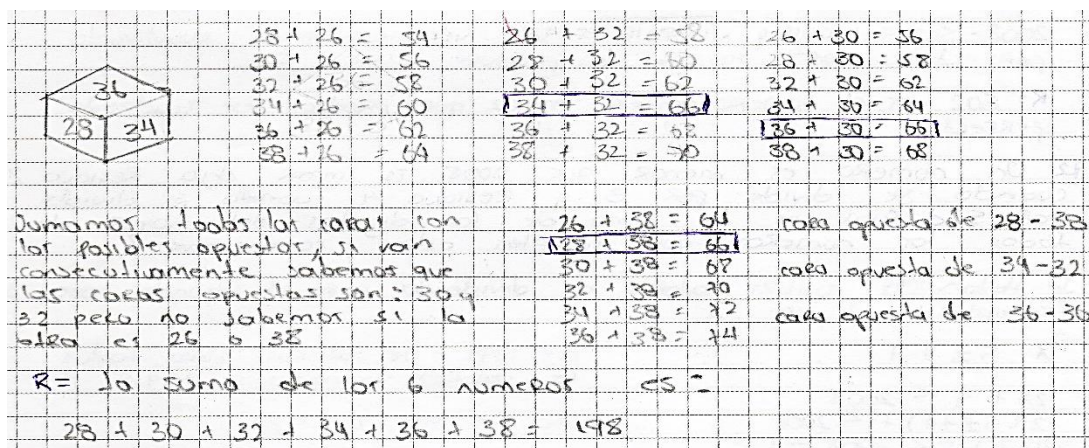 28 + 26 = 54
30 + 26 = 56
32 + 26 = 58
34 + 26 = 60
36 + 26 = 62
38 + 26 = 64
26 + 32 = 58
28 + 32 = 60
30 + 32 = 62
34 + 32 = 66
36 + 32 = 68
38 + 32 = 70
26 + 30 = 56
28 + 30 = 58
32 + 30 = 62
34 + 30 = 64
36 + 30 = 66
38 + 30 = 68
36
28 34
Sumamos todas las caras con
las posibles opuestas, si van
consecutivamente sabemos que
las caras opuestas son: 30 y
32 pero no sabemos si la
otra es 26 o 38
26 + 38 = 64
28 + 38 = 66
30 + 38 = 68
32 + 38 = 70
34 + 38 = 72
36 + 38 = 74
cara opuesta de 28 - 38
cara opuesta de 34 - 32
cara opuesta de 36 - 30
R= la suma de los 6 numeros es =
28 + 30 + 32 + 34 + 36 + 38 = 198